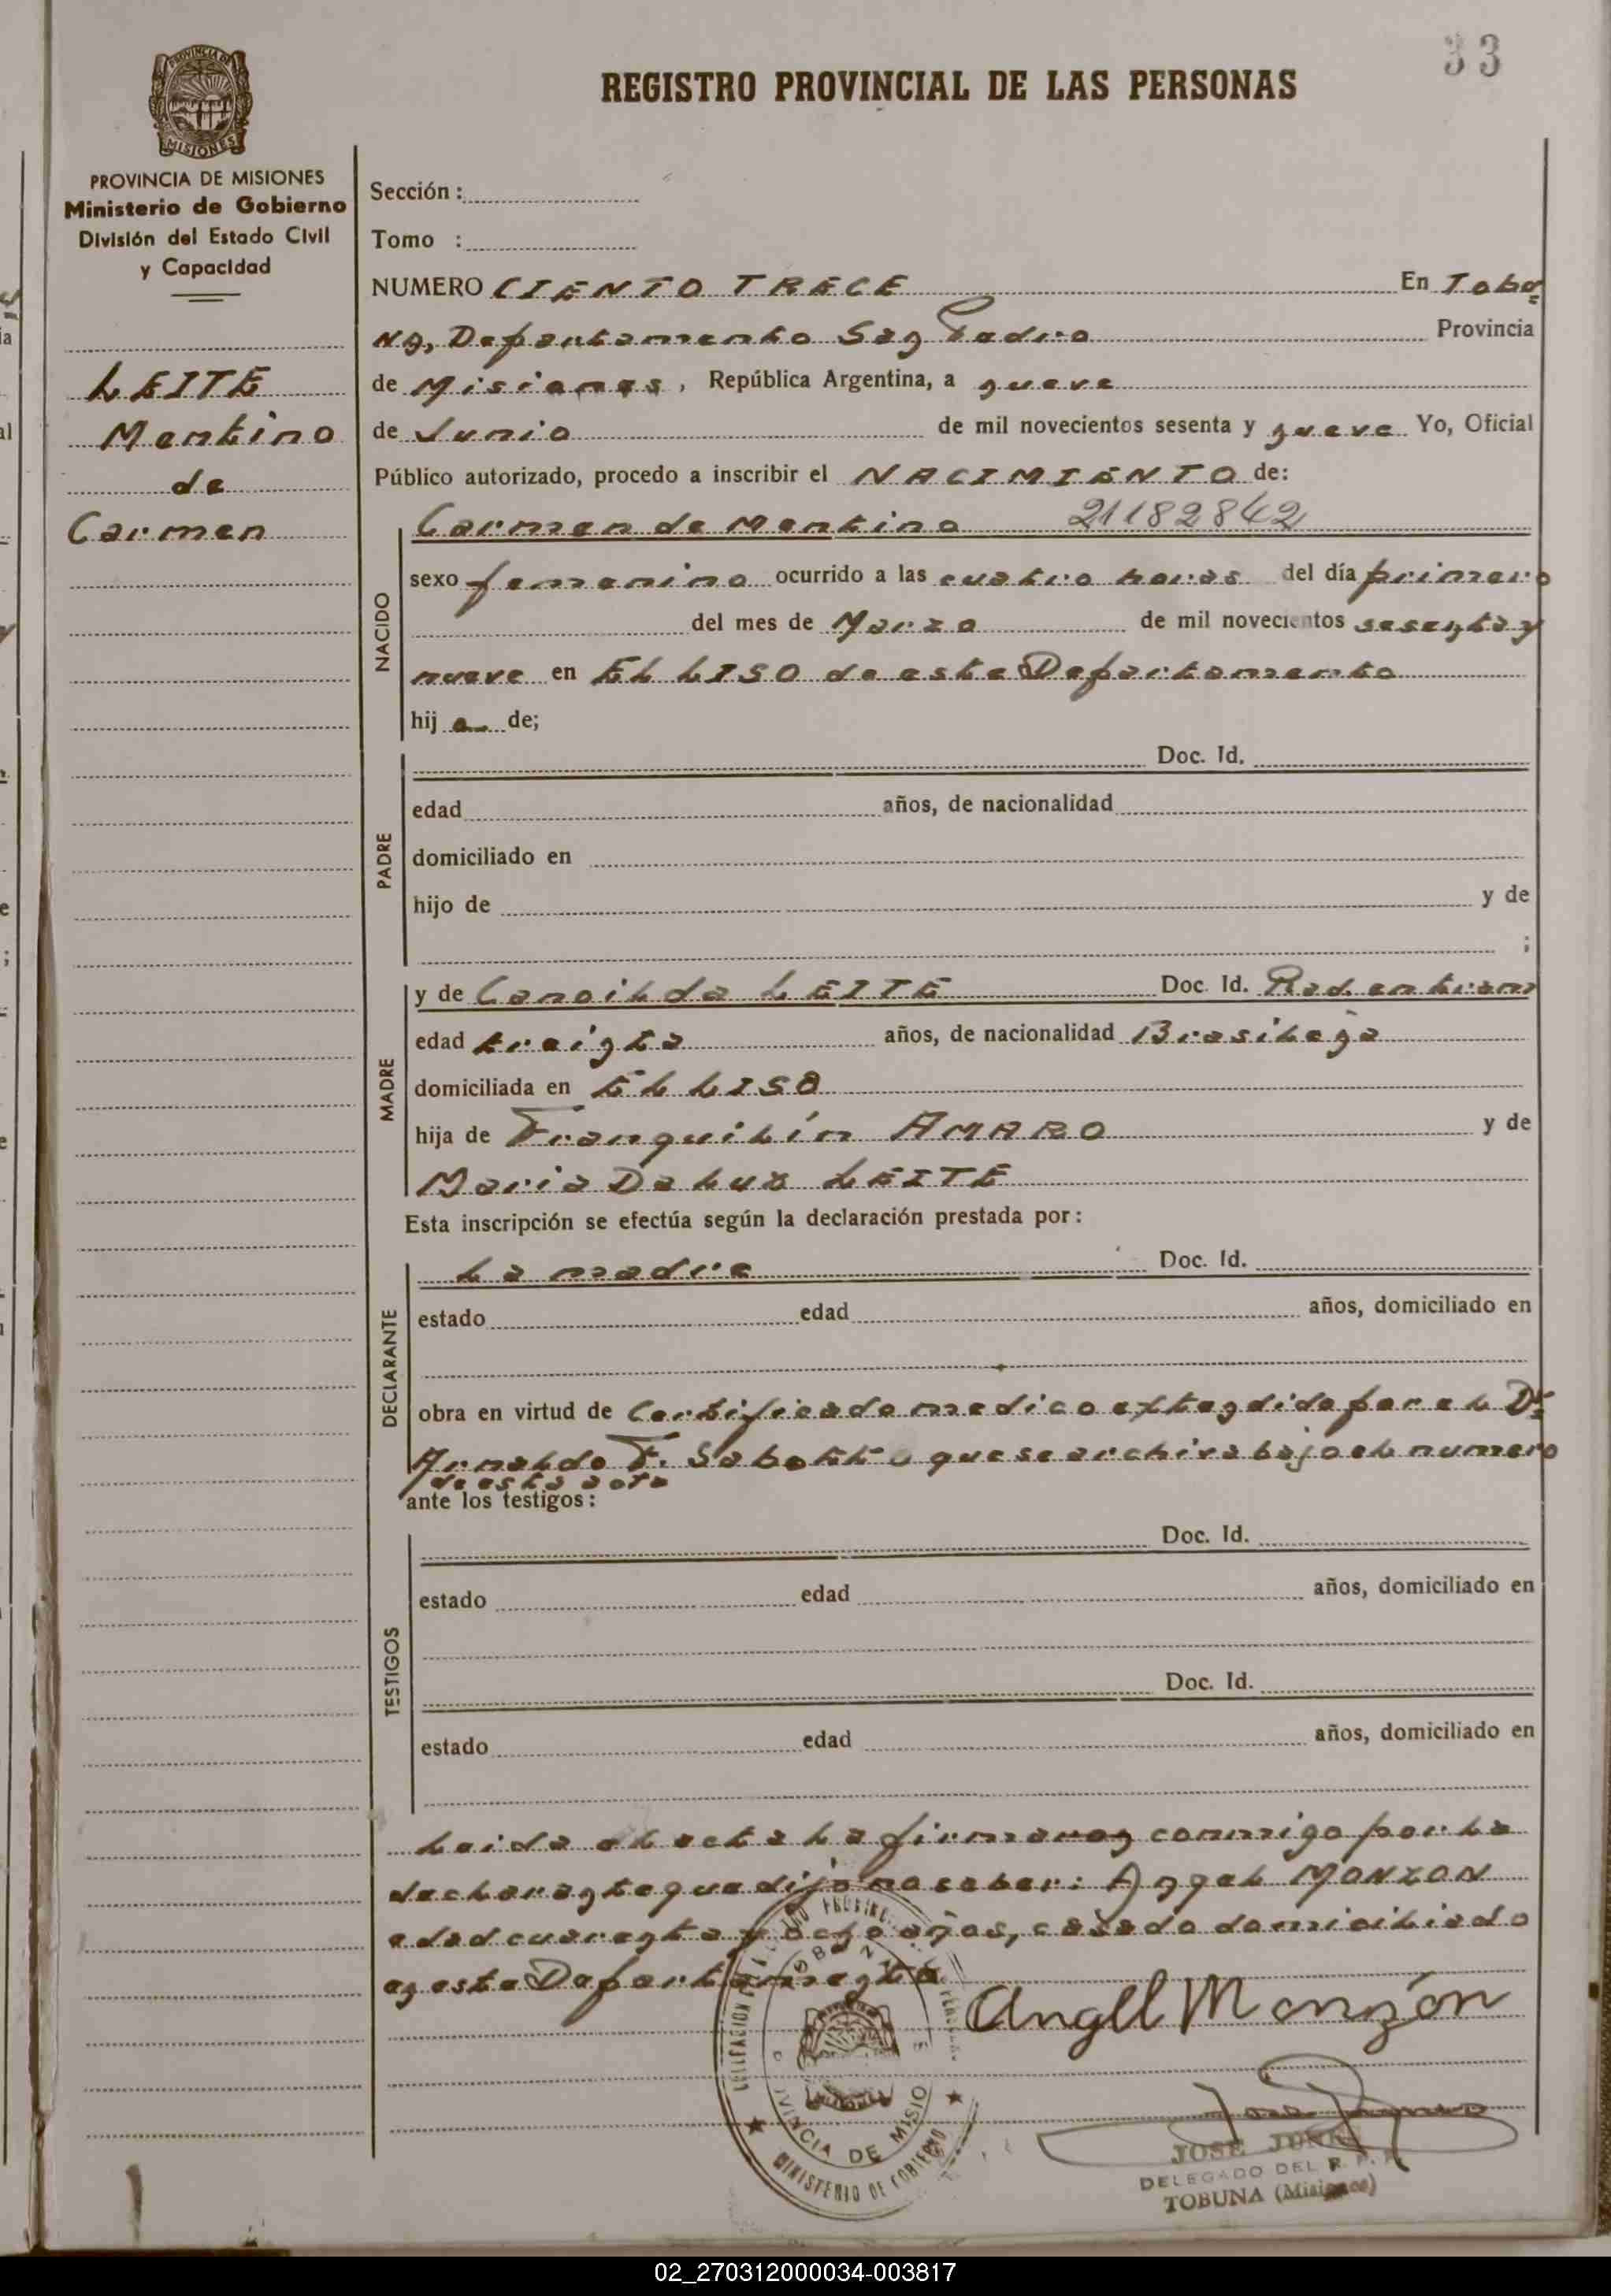 33
REGISTRO PROVINCIAL DE LAS PERSONAS
PROVINCIA DE MISIONES
Ministerio de Gobierno
División del Estado Civil
y Capacidad
LEITE
Mentino
de
Carmen
Sección :
Tomo :
NUMERO CIENTO TRECE En Tobu
na, Departamento San Pedro Provincia
de Misiones, República Argentina, a nueve
de Junio de mil novecientos sesenta y nueve Yo, Oficial
Público autorizado, procedo a inscribir el NACIMIENTO de:
NACIDO
Carmen de Mentino 21182842
sexo femenino ocurrido a las cuatro horas del día primero
del mes de Marzo de mil novecientos sesenta y
nueve en EL LISO de este Departamento
hij a de;
PADRE
Doc. Id.
edad años, de nacionalidad
domiciliado en
hijo de y de
;
MADRE
y de Canoilda LEITE Doc. Id.
edad treinta años, de nacionalidad Brasileña
domiciliada en EL LISO
hija de Franquilín AMARO y de
Maria Da Luz LEITE
Esta inscripción se efectúa según la declaración prestada por:
DECLARANTE
La madre Doc. Id.
estado edad años, domiciliado en
obra en virtud de Certificado medico extendido por el Dr
Arnaldo F. que se archiva bajo el numero
de esta acta
ante los testigos:
TESTIGOS
Doc. Id.
estado edad años, domiciliado en
Doc. Id.
estado edad años, domiciliado en
Leida el acta la firma conmigo por la
declarante que dijo no saber: Angel MONZON
edad cuarenta y ocho años, casado domiciliado
en este Departamento
Angel Monzón
PROVINCIA DE MISIONES
MINISTERIO DE GOBIERNO
JOSE
DELEGADO DEL R. P.
TOBUNA (Misiones)
02_270312000034-003817